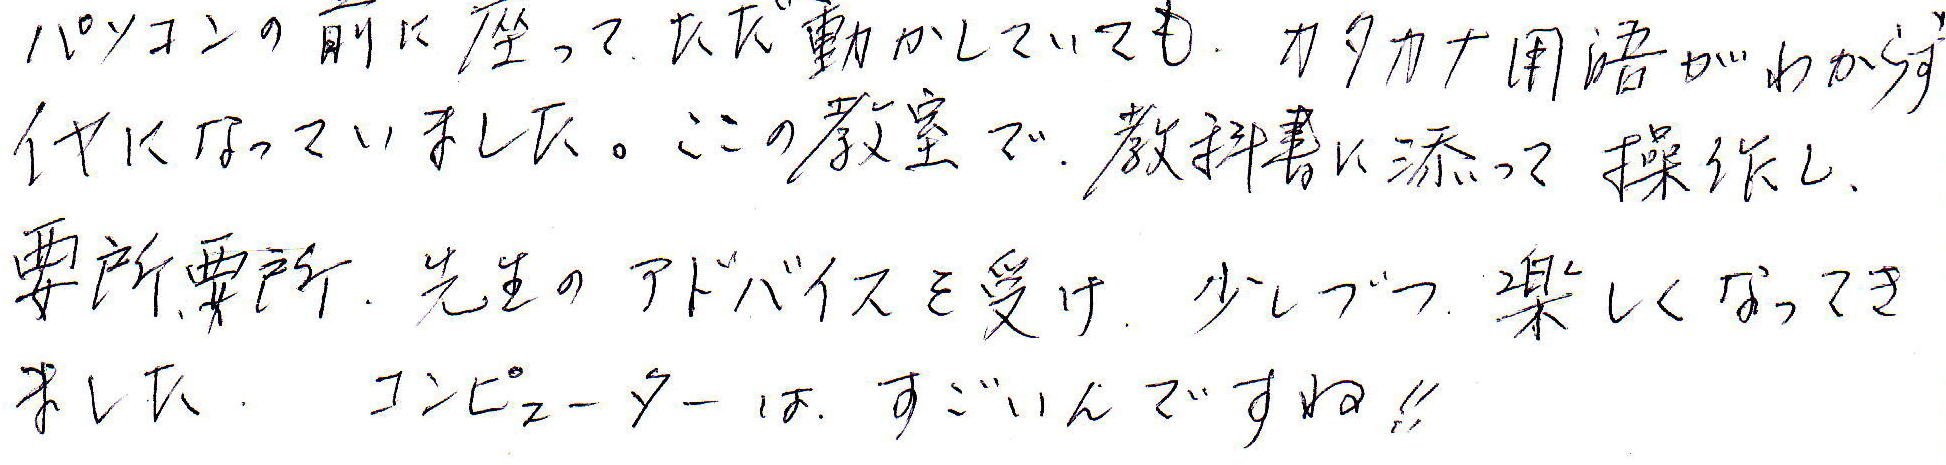 パソコンの前に座って、ただ動かしていても、カタカナ用語がわからず
イヤになっていました。ここの教室で、教科書に添って操作し、
要所要所、先生のアドバイスを受け、少しづつ、楽しくなってき
ました。 コンピューターは、すごいんですね!!